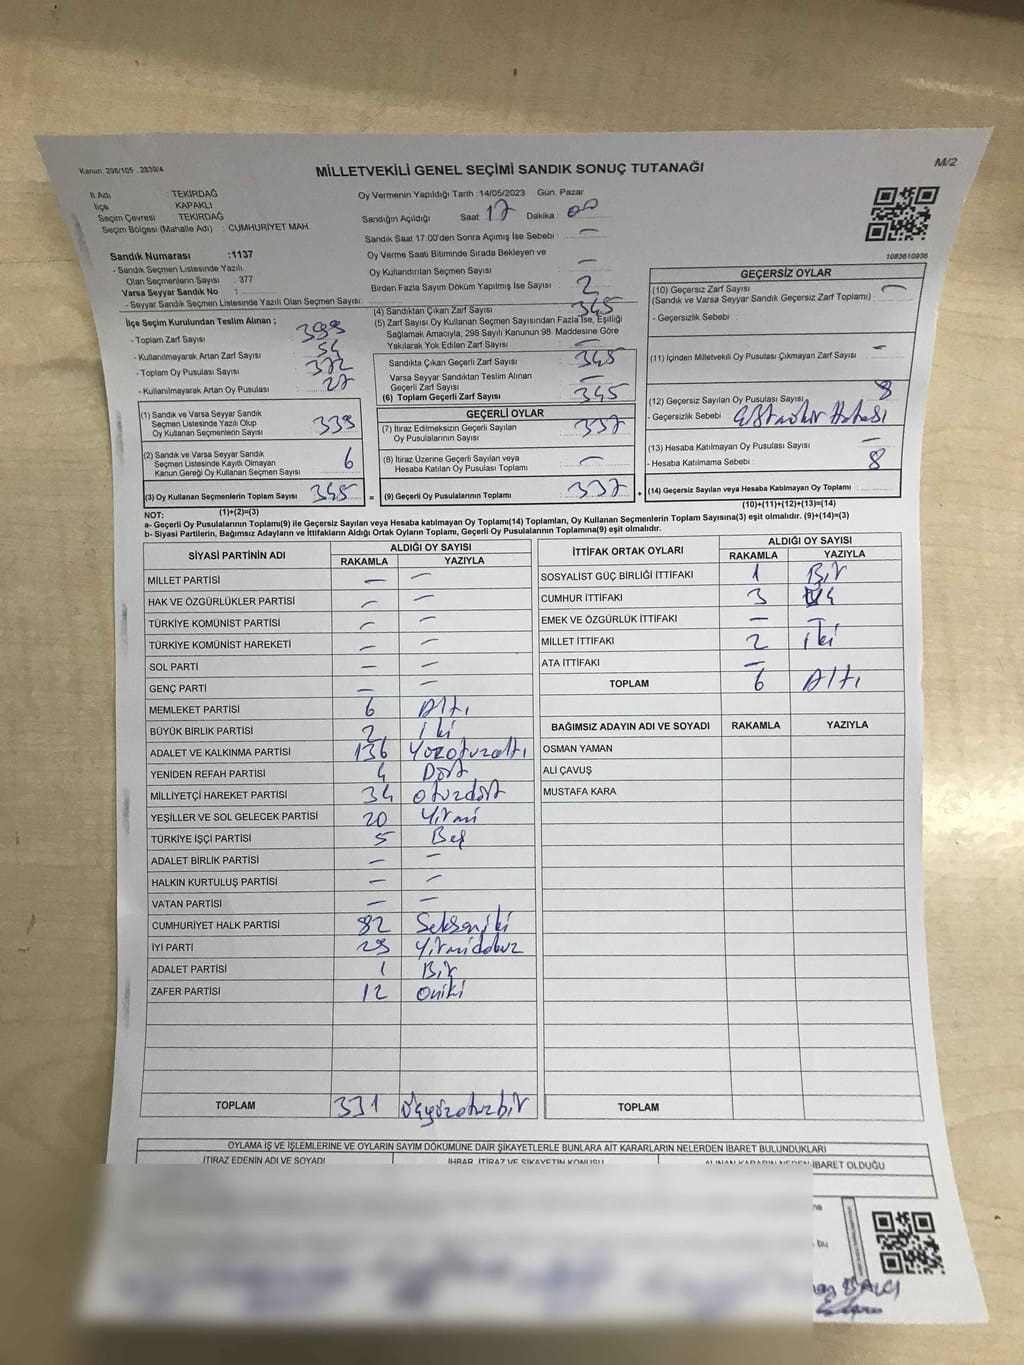 Kanun: 298/105 , 2839/4
MİLLETVEKİLİ GENEL SEÇİMİ SANDIK SONUÇ TUTANAĞI
M/2
İl Adı : TEKİRDAĞ
İlçe : KAPAKLI
Seçim Çevresi TEKİRDAĞ
Seçim Bölgesi (Mahalle Adı) : CUMHURİYET MAH.
Oy Vermenin Yapıldığı Tarih :14/05/2023 Gün. Pazar
Sandığın Açıldığı Saat 17 Dakika : 00
Sandık Saat 17.00'den Sonra Açımış İse Sebebi : —
Oy Verme Saati Bitiminde Sırada Bekleyen ve
Oy Kullandırılan Seçmen Sayısı : —
Birden Fazla Sayım Döküm Yapılmış İse Sayısı : 2
1083610936
Sandık Numarası :1137
- Sandık Seçmen Listesinde Yazılı
Olan Seçmenlerin Sayısı : 377
Varsa Seyyar Sandık No :
- Seyyar Sandık Seçmen Listesinde Yazılı Olan Seçmen Sayısı:
İlçe Seçim Kurulundan Teslim Alınan ;
- Toplam Zarf Sayısı : 399
- Kullanılmayarak Artan Zarf Sayısı : 54
- Toplam Oy Pusulası Sayısı : 372
- Kullanılmayarak Artan Oy Pusulası : 27
(1) Sandık ve Varsa Seyyar Sandık
Seçmen Listesinde Yazılı Olup
Oy Kullanan Seçmenlerin Sayısı 339
(2) Sandık ve Varsa Seyyar Sandık
Seçmen Listesinde Kayıtlı Olmayan
Kanun Gereği Oy Kullanan Seçmen Sayısı 6
(3) Oy Kullanan Seçmenlerin Toplam Sayısı 345
(1)+(2)=(3)
(4) Sandıktan Çıkan Zarf Sayısı 345
(5) Zarf Sayısı Oy Kullanan Seçmen Sayısından Fazla İse, Eşitliği
Sağlamak Amacıyla, 298 Sayılı Kanunun 98. Maddesine Göre
Yakılarak Yok Edilen Zarf Sayısı : —
Sandıkta Çıkan Geçerli Zarf Sayısı 345
Varsa Seyyar Sandıktan Teslim Alınan
Geçerli Zarf Sayısı —
(6) Toplam Geçerli Zarf Sayısı 345
GEÇERLİ OYLAR
(7) İtiraz Edilmeksizin Geçerli Sayılan
Oy Pusulalarının Sayısı 337
(8) İtiraz Üzerine Geçerli Sayılan veya
Hesaba Katılan Oy Pusulası Toplamı —
= (9) Geçerli Oy Pusulalarının Toplamı 337 +
GEÇERSİZ OYLAR
(10) Geçersiz Zarf Sayısı —
(Sandık ve Varsa Seyyar Sandık Geçersiz Zarf Toplamı) :
- Geçersizlik Sebebi :
(11) İçinden Milletvekili Oy Pusulası Çıkmayan Zarf Sayısı : —
(12) Geçersiz Sayılan Oy Pusulası Sayısı 8
- Geçersizlik Sebebi :
(13) Hesaba Katılmayan Oy Pusulası Sayısı —
- Hesaba Katılmama Sebebi : 8
(14) Geçersiz Sayılan veya Hesaba Katılmayan Oy Toplamı :
(10)+(11)+(12)+(13)=(14)
NOT:
a- Geçerli Oy Pusulalarının Toplamı(9) ile Geçersiz Sayılan veya Hesaba katılmayan Oy Toplamı(14) Toplamları, Oy Kullanan Seçmenlerin Toplam Sayısına(3) eşit olmalıdır. (9)+(14)=(3)
b- Siyasi Partilerin, Bağımsız Adayların ve İttifakların Aldığı Ortak Oyların Toplamı, Geçerli Oy Pusulalarının Toplamına(9) eşit olmalıdır.
SİYASİ PARTİNİN ADI ALDIĞI OY SAYISI
RAKAMLA YAZIYLA
MİLLET PARTİSİ — —
HAK VE ÖZGÜRLÜKLER PARTİSİ — —
TÜRKİYE KOMÜNİST PARTİSİ — —
TÜRKİYE KOMÜNİST HAREKETİ — —
SOL PARTİ — —
GENÇ PARTİ — —
MEMLEKET PARTİSİ 6 Altı
BÜYÜK BİRLİK PARTİSİ 2 iki
ADALET VE KALKINMA PARTİSİ 136 Yüzotuzaltı
YENİDEN REFAH PARTİSİ 4 Dört
MİLLİYETÇİ HAREKET PARTİSİ 34 otuzdört
YEŞİLLER VE SOL GELECEK PARTİSİ 20 Yirmi
TÜRKİYE İŞÇİ PARTİSİ 5 Beş
ADALET BİRLİK PARTİSİ — —
HALKIN KURTULUŞ PARTİSİ — —
VATAN PARTİSİ — —
CUMHURİYET HALK PARTİSİ 82 Seksen iki
İYİ PARTİ 29 Yirmidokuz
ADALET PARTİSİ 1 Bir
ZAFER PARTİSİ 12 oniki
TOPLAM 331 üçyüzotuzbir
İTTİFAK ORTAK OYLARI ALDIĞI OY SAYISI
RAKAMLA YAZIYLA
SOSYALİST GÜÇ BİRLİĞİ İTTİFAKI 1 Bir
CUMHUR İTTİFAKI 3
EMEK VE ÖZGÜRLÜK İTTİFAKI — —
MİLLET İTTİFAKI 2 iki
ATA İTTİFAKI —
TOPLAM 6 Altı
BAĞIMSIZ ADAYIN ADI VE SOYADI RAKAMLA YAZIYLA
OSMAN YAMAN
ALİ ÇAVUŞ
MUSTAFA KARA
TOPLAM
OYLAMA İŞ VE İŞLEMLERİNE VE OYLARIN SAYIM DÖKÜMÜNE DAİR ŞİKAYETLERLE BUNLARA AİT KARARLARIN NELERDEN İBARET BULUNDUKLARI
İTİRAZ EDENİN ADI VE SOYADI İHBAR, İTİRAZ VE ŞİKAYETİN KONUSU ALINAN KARARIN NEDEN İBARET OLDUĞU
bu